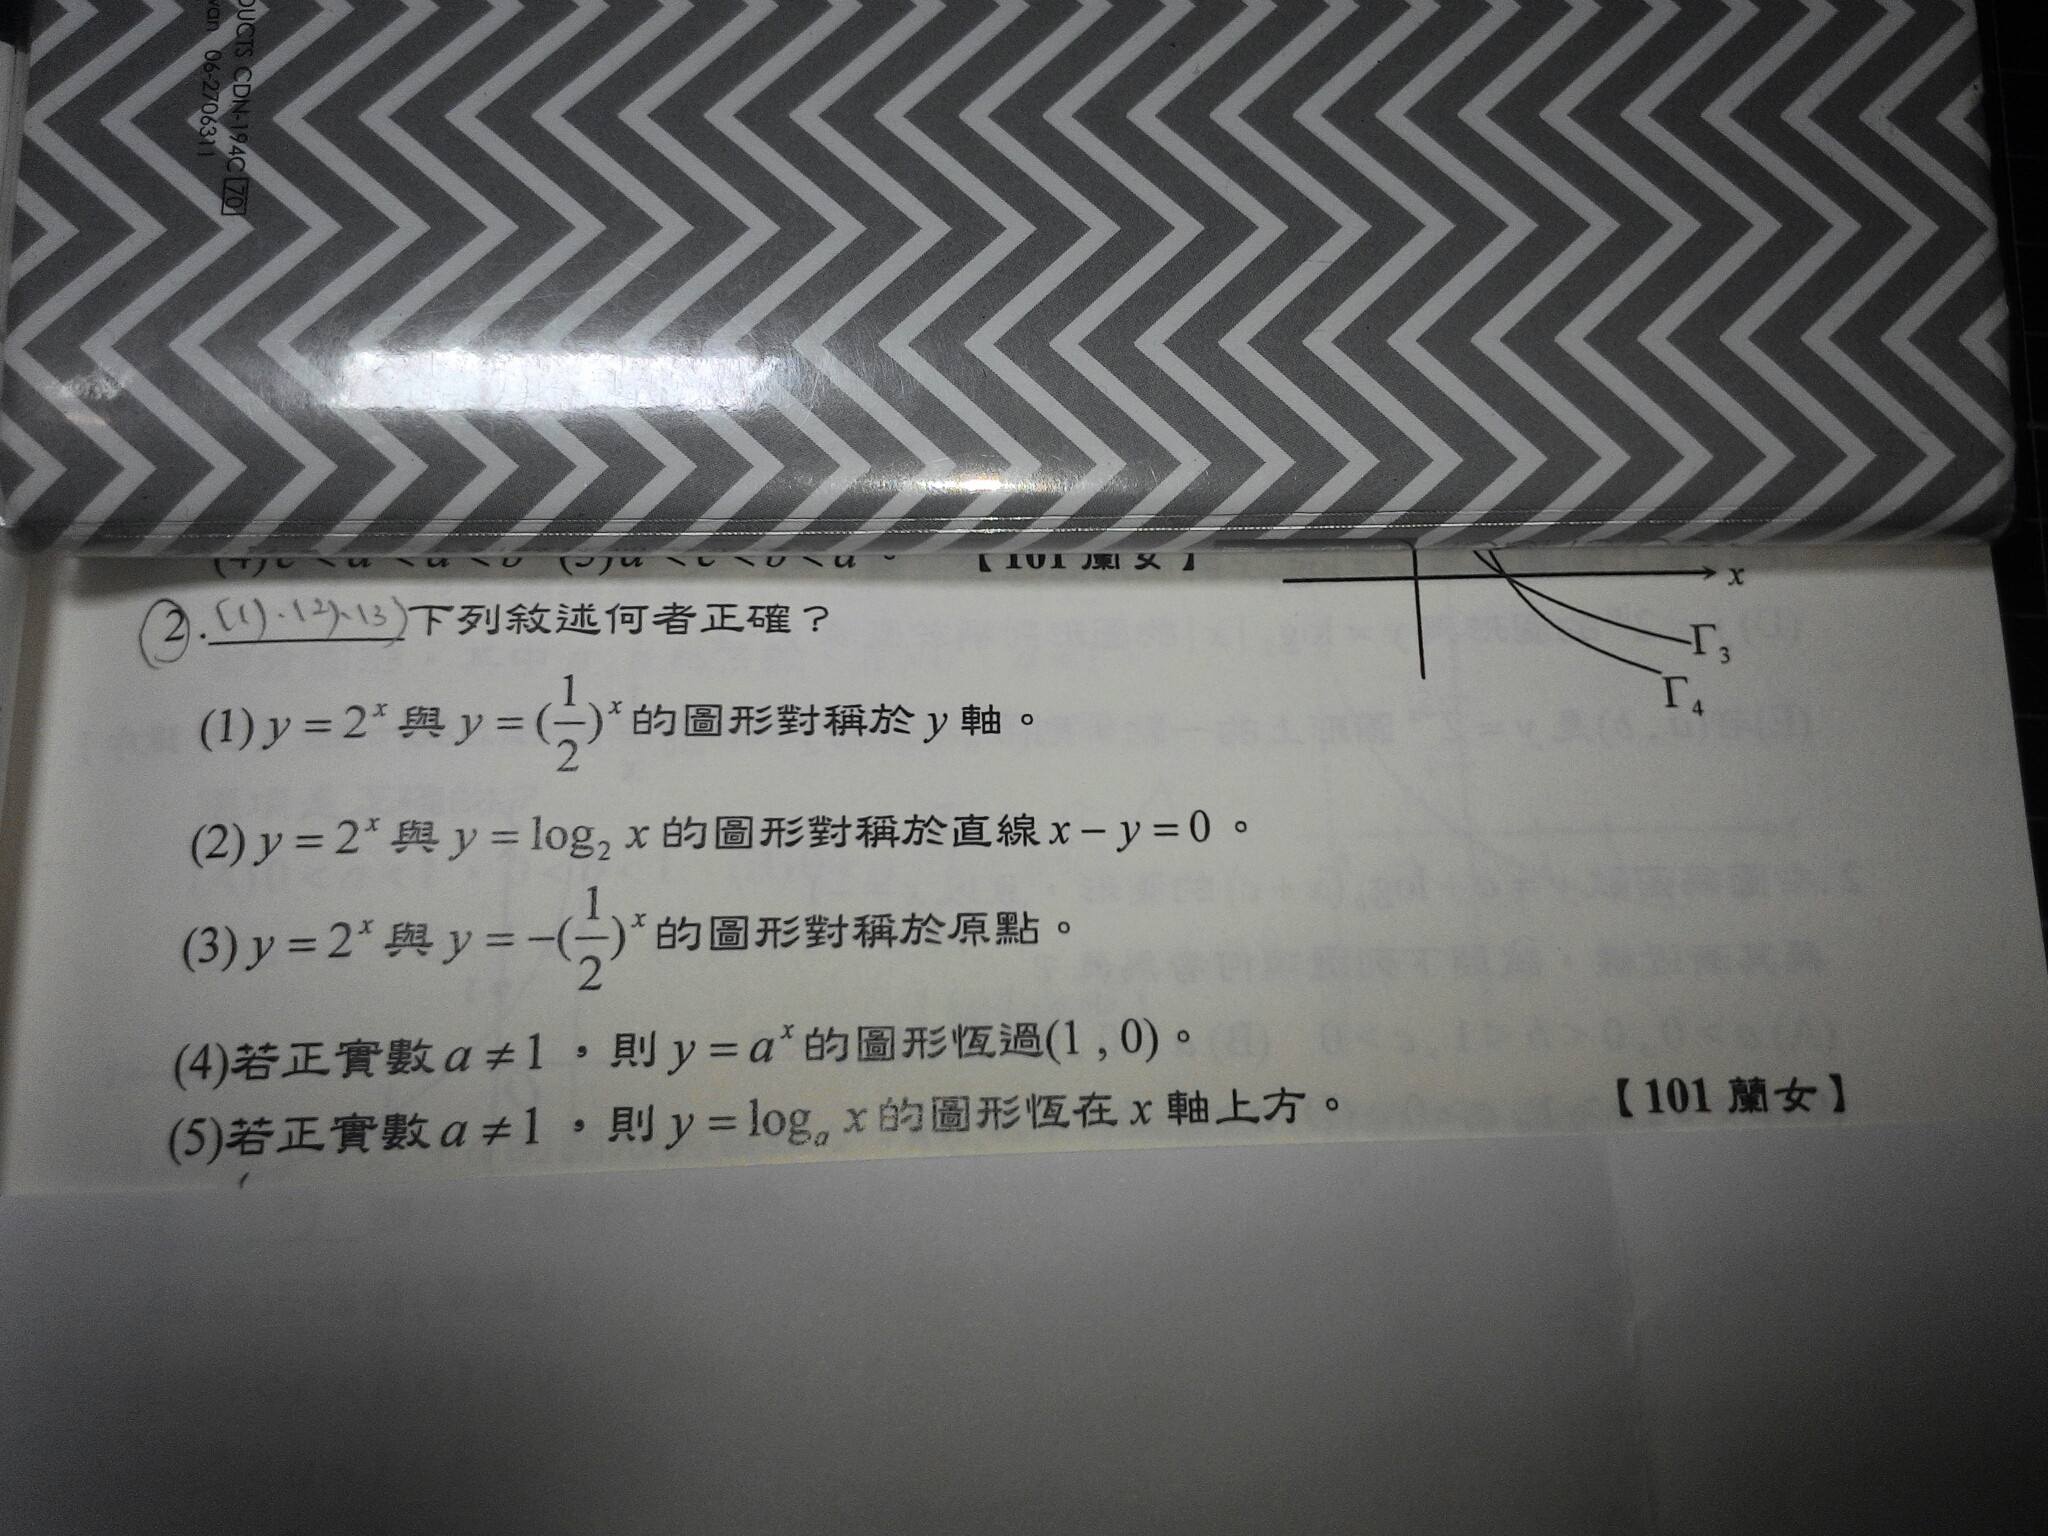 DUCTS CDN-194C 70
wan 06-2706311
(4)c<d<a<b (5)d<c<b<a。 【101 蘭女】
x
2. (1).(2).(3) 下列敘述何者正確？
Γ₃
Γ₄
(1) y = 2ˣ 與 y = (1/2)ˣ 的圖形對稱於 y 軸。
(2) y = 2ˣ 與 y = log₂ x 的圖形對稱於直線 x − y = 0 。
(3) y = 2ˣ 與 y = −(1/2)ˣ 的圖形對稱於原點。
(4)若正實數 a ≠ 1 ，則 y = aˣ 的圖形恆過(1 , 0)。
(5)若正實數 a ≠ 1 ，則 y = logₐ x 的圖形恆在 x 軸上方。 【101 蘭女】